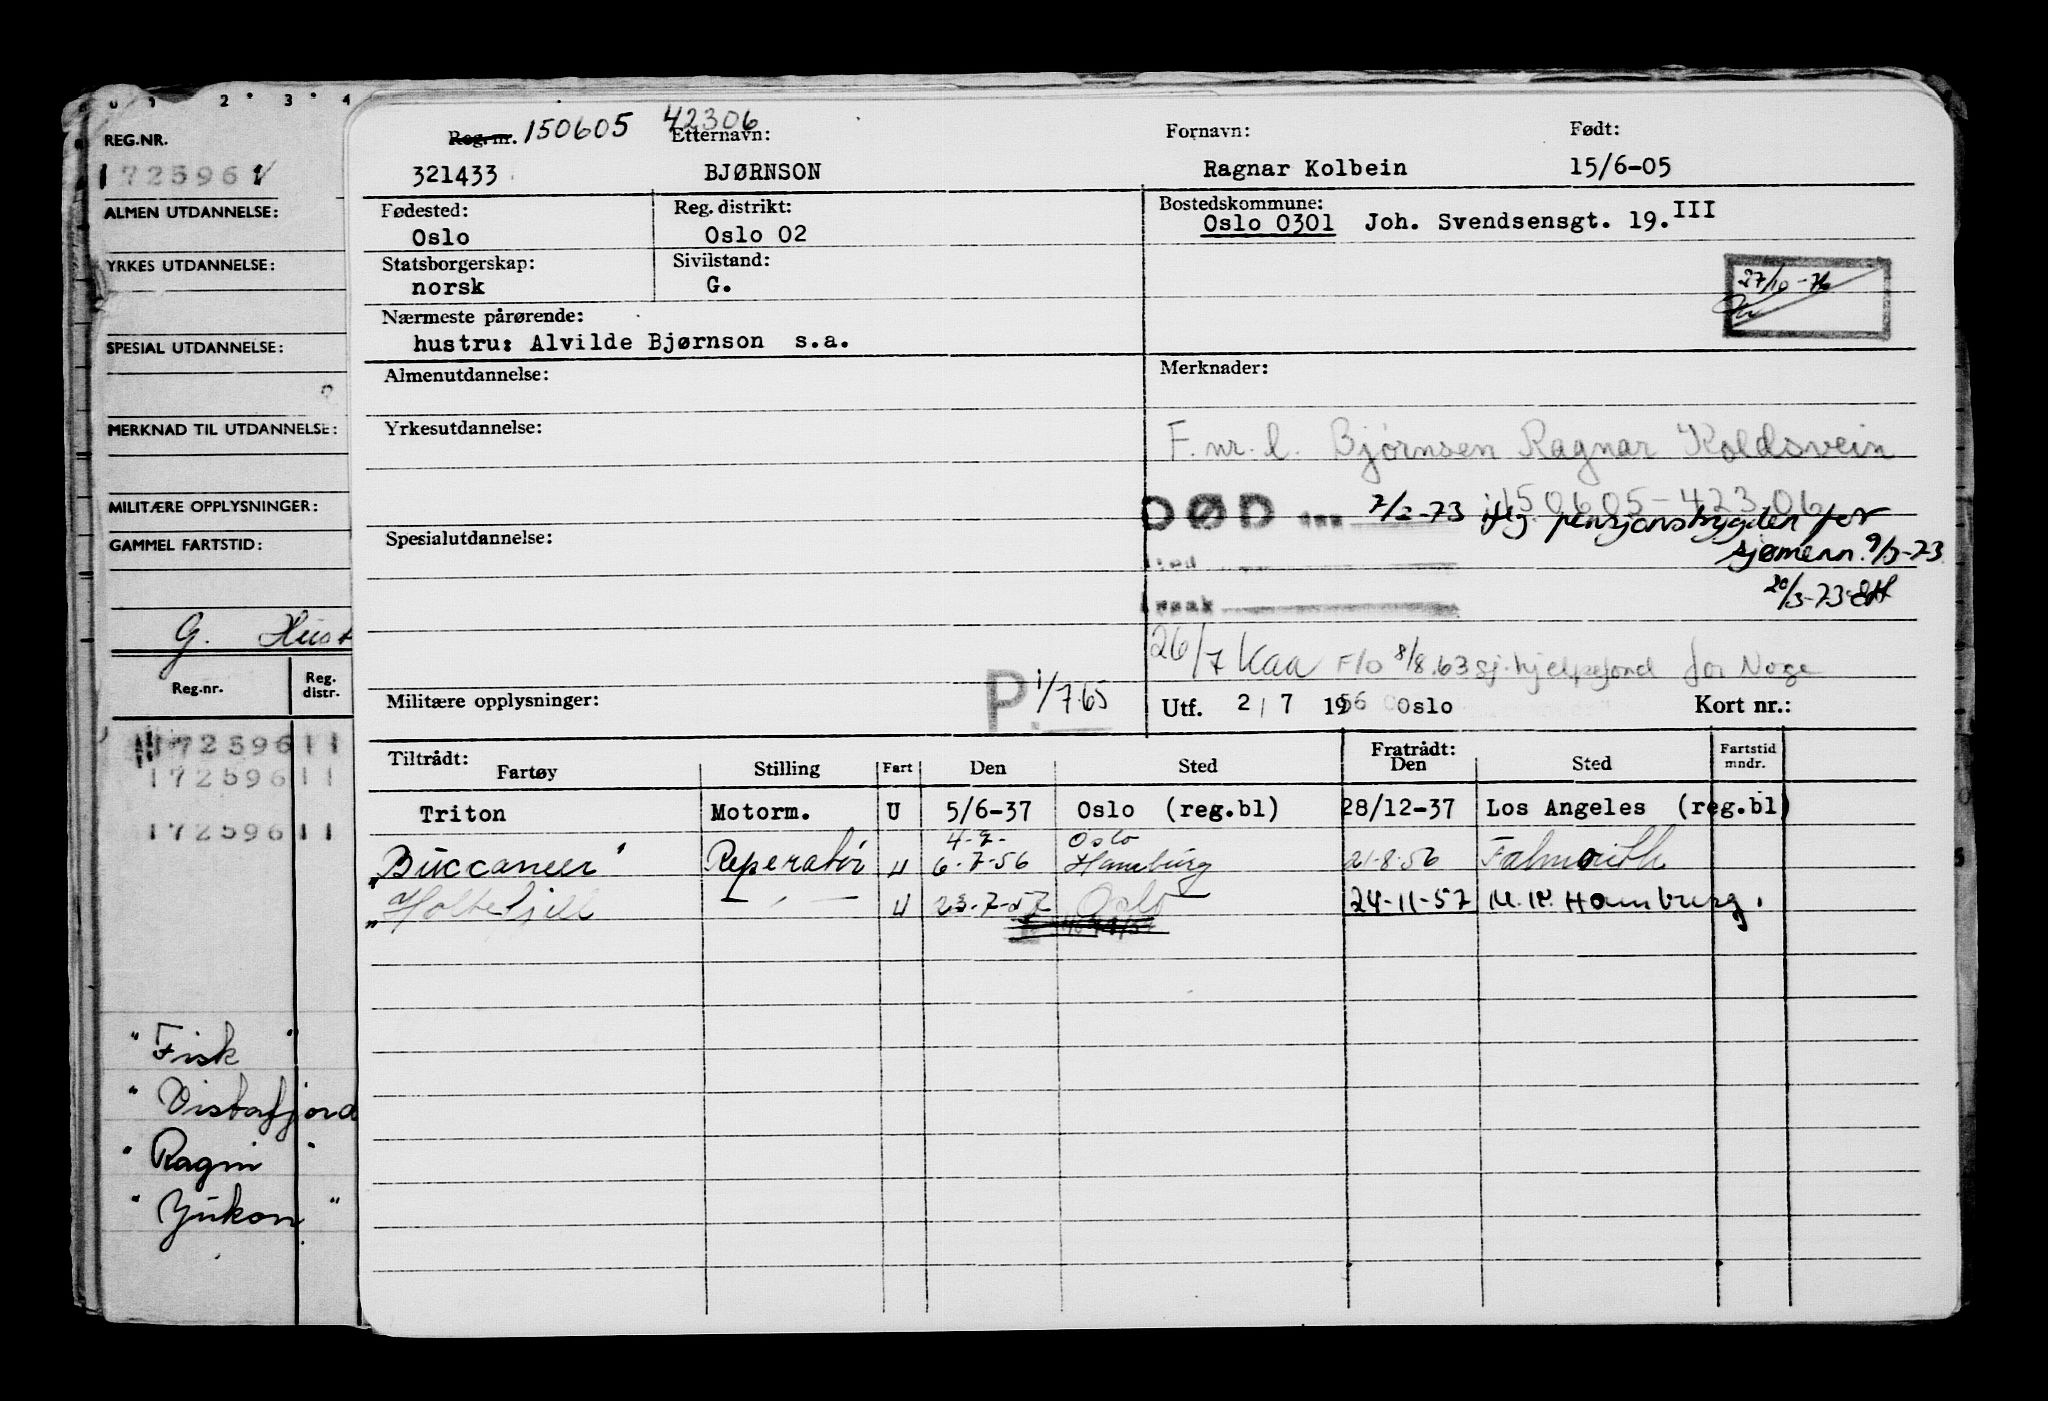 0 1 2 3 4
REG.NR.
1725961
ALMEN UTDANNELSE:
YRKES UTDANNELSE:
SPESIAL UTDANNELSE:
MERKNAD TIL UTDANNELSE:
MILITÆRE OPPLYSNINGER:
GAMMEL FARTSTID:
G. Hust
Reg.nr. Reg. distr.
172596 11
172596 11
172596 11
" Fisk "
" Vistafjord
" Ragni "
" Yukon "
Reg. nr. 150605 42306
Etternavn: Fornavn: Født:
321433 BJØRNSON Ragnar Kolbein 15/6-05
Fødested: Reg. distrikt: Bostedskommune:
Oslo Oslo 02 Oslo 0301 Joh. Svendsensgt. 19.III
Statsborgerskap: Sivilstand:
norsk G.
27/10-76
Nærmeste pårørende:
hustru: Alvilde Bjørnson s.a.
Almenutdannelse: Merknader:
Yrkesutdannelse:
F. nr. l. Bjørnsen Ragnar Koldsvein
150605-42306
DØD den 7/2-73 iflg pensjonstrygden for
sjømenn. 9/3-73
Spesialutdannelse:
Sted
20/3-73 EH
Årsak
26/7 Kaa F/O 8/8.63 sj.hjelpefond for Noge
Militære opplysninger: P. 1/7 65
Utf. 2/7 1956 Oslo Kort nr.:
Tiltrådt: Fratrådt:
Fartøy Stilling Fart Den Sted Den Sted Fartstid mndr.
Triton Motorm. U 5/6-37 Oslo (reg.bl) 28/12-37 Los Angeles (reg.bl)
4-7- Oslo
"Buccaneer" Reperatør U 6-7-56 Hamburg 21-8-56 Falmouth
"Holtefjell — " — U 23-7-57 Oslo 24-11-57 M.M. Hamburg.